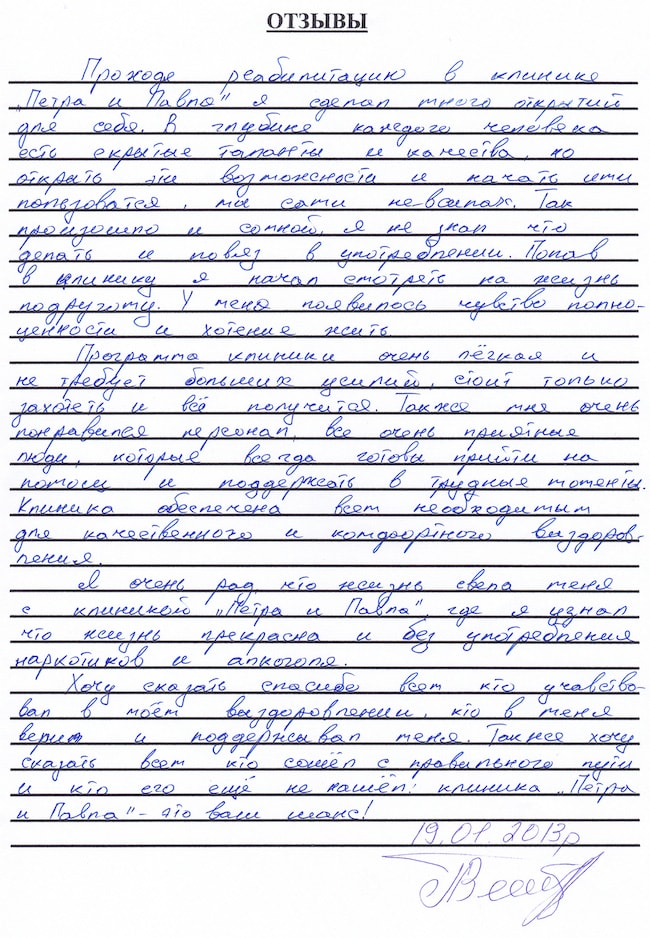 ОТЗЫВЫ
Проходя реабилитацию в клинике
„Петра и Павла" я сделал много открытий
для себя. В глубине каждого человека
есть скрытые таланты и качества, но
открыть эти возможности и начать ими
пользоватся, мы сами не в силах. Так
произошло и со мной, я не знал что
делать и повяз в употреблении. Попав
в клинику я начал смотреть на жизнь
подругому. У меня появилось чувство полно-
ценности и хотение жить.
Программа клиники очень лёгкая и
не требует больших усилий, стоит только
захотеть и всё получится. Также мне очень
понравился персонал, все очень приятные
люди, которые всегда готовы прийти на
помощ и поддержать в трудные моменты.
Клиника обеспечена всем необходимым
для качественного и комфортного выздоров-
ления.
Я очень рад, что жизнь свела меня
с клиникой „Петра и Павла", где я узнал
что жизнь прекрасна и без употребления
наркотиков и алкоголя.
Хочу сказать спасибо всем кто учавство-
вал в моём выздоровлении, кто в меня
верил и поддерживал меня. Также хочу
сказать всем кто сошёл с правильного пути
и кто его ещё не нашёл: клиника „Петра
и Павла" - это ваш шанс!
19.01.2013р